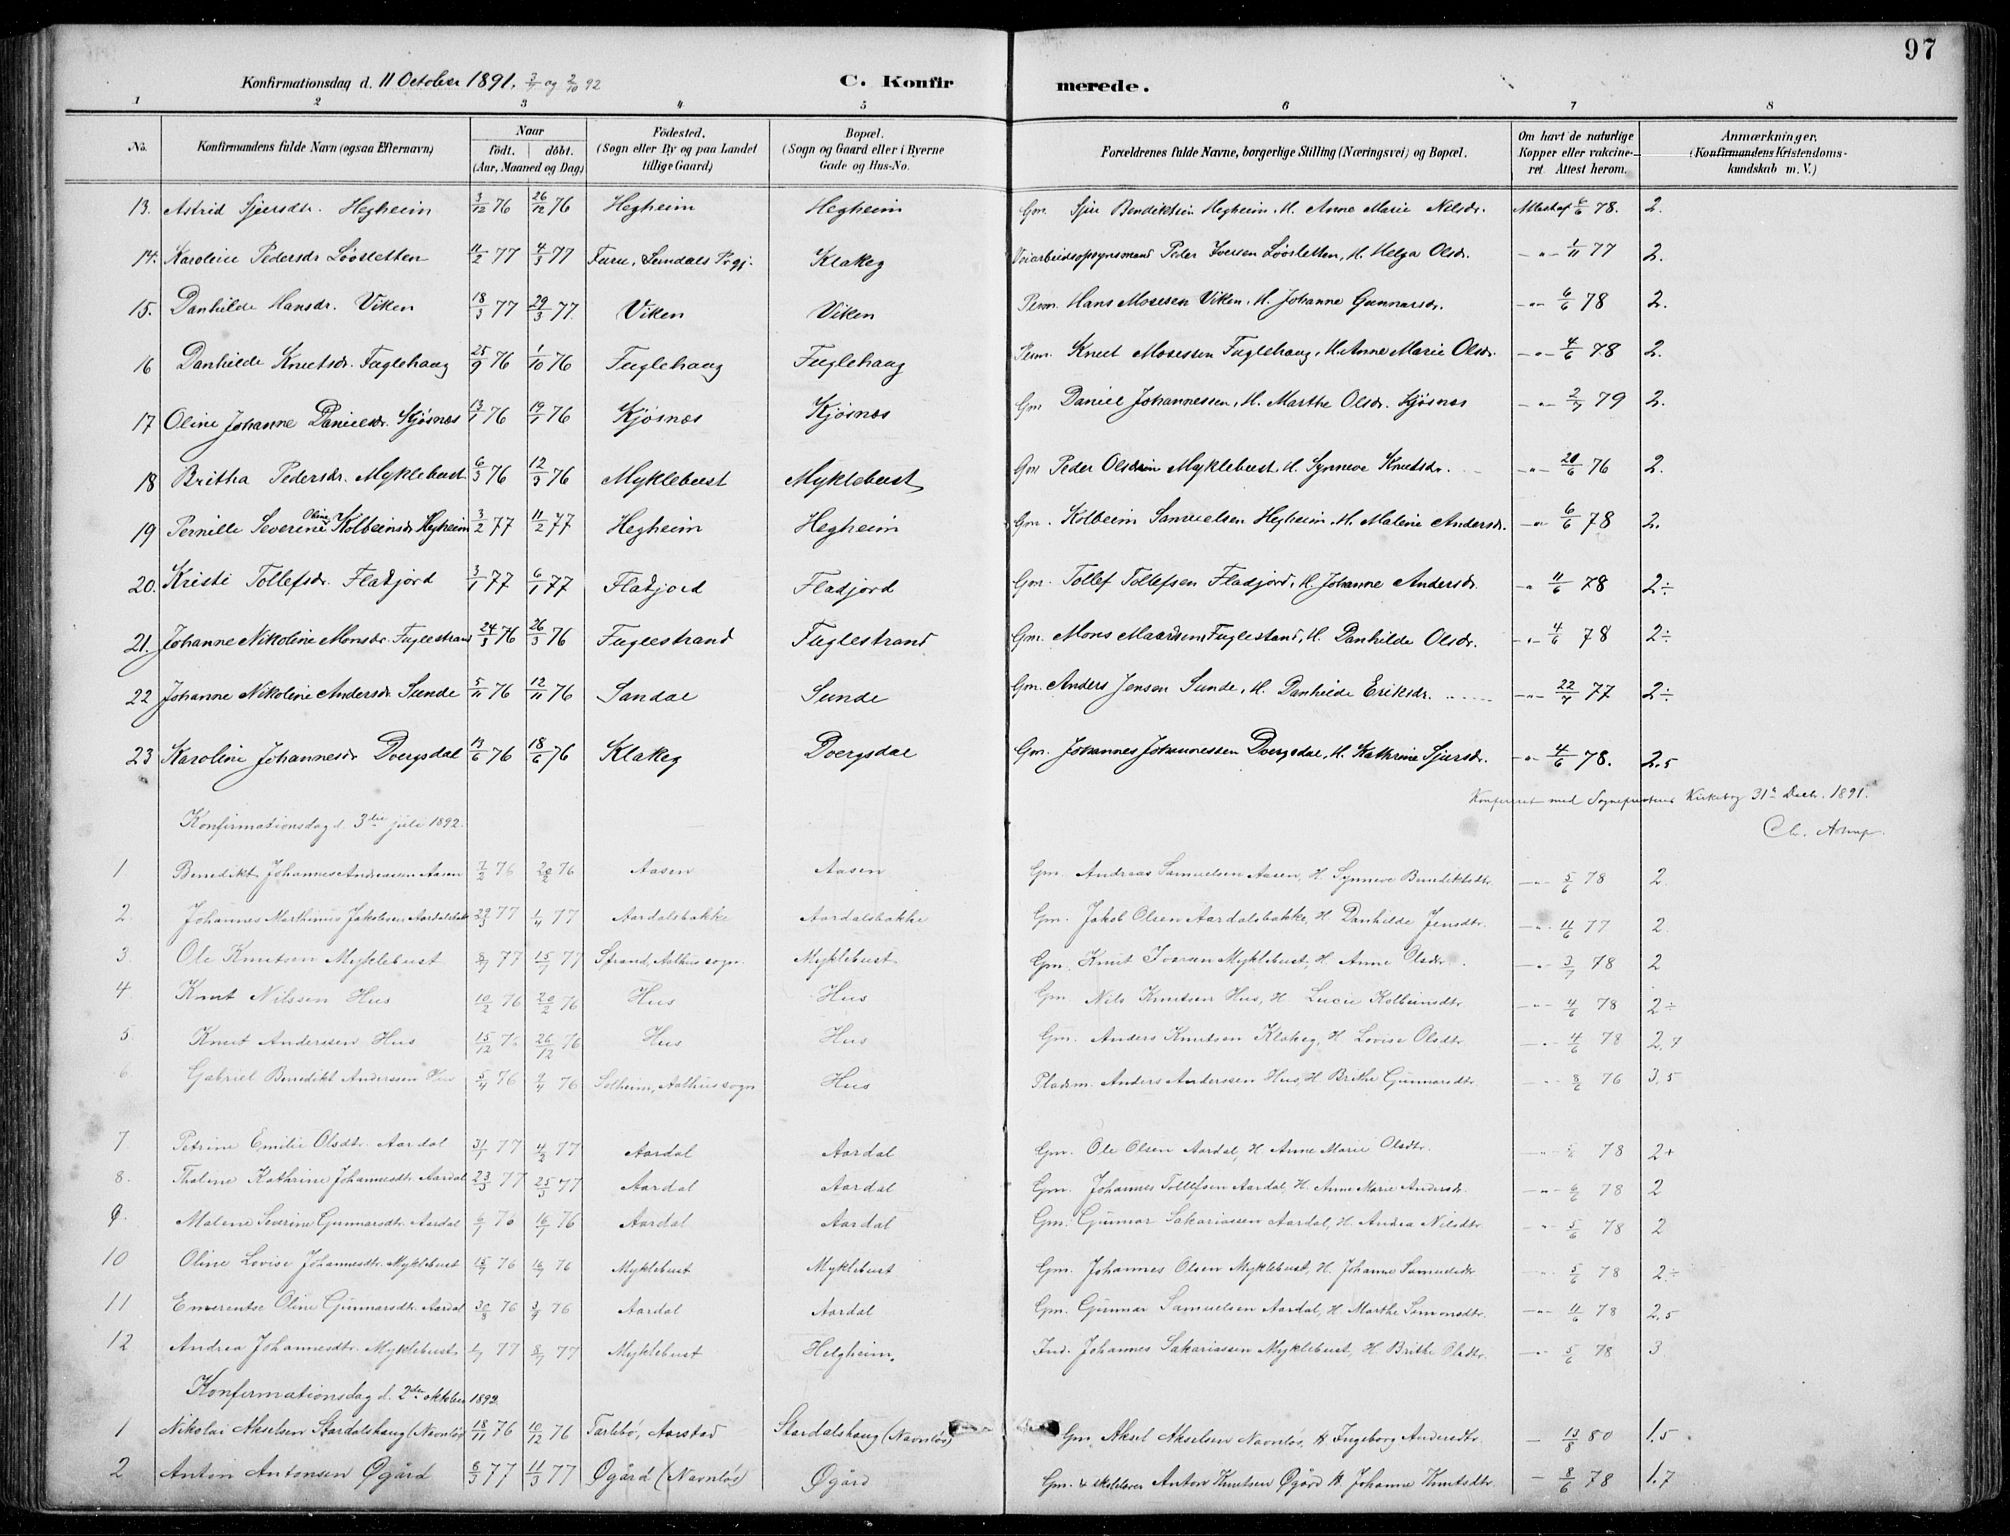 97
Konfirmationsdag d. 11 October 1891. 3/7 og 2/10 92 C. Konfirmerede.
1 2 3 4 5 6 7 8
No. Konfirmandens fulde Navn (ogsaa Efternavn) Naar födt. döbt. (Aar, Maaned og Dag) Födested. (Sogn eller By og paa Landet tillige Gaard) Bopæl. (Sogn og Gaard eller i Byerne Gade og Hus-No. Forældrenes fulde Navne, borgerlige Stilling (Næringsvei) og Bopæl. Om havt de naturlige Kopper eller vakcineret. Attest herom. Anmærkninger. (Konfirmandens Kristendomskundskab m. V.)
13. Astrid Sjursdr. Hegheim 3/12 76 26/12 76 Hegheim Hegheim Gm. Sjur Bendiktsen Hegheim, H. Anne Marie Nilsdr. Attest af 6/6 78. 2.
14. Karoline Pedersdr Löosletten 11/2 77 4/3 77 Furu, Prgj. Klakeg Veiarbeidsopsynsmand Peder Iversen Löosletten, H. Helga Olsdr. —"— 1/11 77 2.
15. Danhilde Hansdr. Viken 18/3 77 29/3 77. Viken Viken Hans Mosesen Viken, H. Johanne Gunnarsdr. —"— 6/6 78 2.
16 Danhilde Knutsdr. Fuglehaug 25/9 76 1/10 76 Fuglehaug Fuglehaug Knut Mosessen Fuglehaug, H. Anne Marie Olsdr. —"— 4/6 78 2.
17 Oline Johanne Danielsdr. Kjösnæs 13/1 76 19/1 76 Kjösnæs Kjösnæs Gm Daniel Johannessen, H. Marthe Olsdr. Kjösnæs —"— 2/7 79 2.
18 Britha Pedersdr. Myklebust 6/3 76 12/3 76 Myklebust Myklebust Gm Peder Olsen Myklebust, H. Synneve Knutsdr. —"— 20/6 76 2.
19 Pernille Severine Oline Kolbeinsdr Hegheim 3/2 77 11/2 77 Hegheim Hegheim Gm. Kolbein Samuelsen Hegheim, H. Malene Andersdr. —"— 6/6 78 2.
20. Kristi Tollefsdr. Fladjord 3/1 77 6/1 77 Fladjord Fladjord Gm. Tollef Tollefsen Fladjord, H. Johanne Andersdr. —"— 11/6 78 2÷
21. Johanne Nikoline Monsdr. Fuglestrand 24/3 76 26/3 76 Fuglestrand Fuglestrand Gm. Mons Fuglestand, H. Danhilde Olsdr. —"— 4/6 78 2÷
22 Johanne Nikoline Andersdr Sunde 5/11 76 12/11 76 Sandal Sunde Gm. Anders Jensen Sunde, H. Danhilde Eriksdr. —"— 22/7 77 2÷
23 Karoline Johannesdr Dvergsdal 13/6 76 18/6 76 Klakeg Dvergsdal Gm. Johannes Johannessen Dvergsdal, H. Kathrine Sjursdr. —"— 4/6 78. 2.5
Konfereret med Sogneprestens Kirkebog 31te Decb. 1891.
Konfirmationsdag d. 3die juli 1892. Ch. Astrup.
1 Benedikt Johannes Andreassen Aasen 7/2 76 20/2 76 Aasen Aasen Gm. Andreas Samuelsen Aasen, H. Synneve Bendiktsdtr. —"— 5/6 78 2.
2. Johannes Marthinus Jakobsen Aardalsbak. 29/3 77 1/4 77 Aardalsbakke Aardalsbakke Gm. Jakob Olsen Aardalsbakke, H Danhilde Jensdtr. —"— 11/6 77 2.
3. Ole Knutsen Myklebust 8/7 77 15/7 77 Strand, Aalhus sogn. Myklebust Gm. Knut Iversen Myklebust, H. Anne Olsdtr. —"— 3/7 78 2
4 Knut Nilssen Hus 10/2 76 20/2 76 Hus Hus Gm Nils Knutsen Hus, H. Lucie Kolbeinsdtr —"— 4/6 78 2÷
5 Knut Anderssen Hus 15/12 76 26/12 76 Hus Hus Gm. Anders Knutsen Klakeg, H Lovise Olsdtr. —"— 4/6 78 2,7
6 Gabriel Benedikt Anderssen Hus 5/4 76 9/4 76 Solheim, Aalhus sogn Hus Pladsm. Anders Anderssen Hus, H Brithe Gunnarsdtr. —"— 8/6 76 3,5
7 Petrine Emilie Olsdtr. Aardal 31/1 77 4/2 77 Aardal Aardal Gm. Ole Olsen Aardal, H Anne Marie Olsdtr. —"— 5/6 78 2+
8. Thaline Kathrine Johannesdtr. Aardal 23/3 77 25/3 77 Aardal Aardal Gm. Johannes Tollefsen Aardal, H. Anne Marie Andersdr. —"— 6/6 78 2
9. Malene Severine Gunnarsdtr. Aardal 6/7 76 16/7 76 Aardal Aardal Gm. Gunnar Sakariassen Aardal, H. Andrea Nilsdtr. —"— 5/6 78 2
10 Oline Lovise Johannesdtr. Myklebust 15/7 76 16/7 76 Myklebust Myklebust Gm. Johannes Olsen Myklebust, H. Johanne Samuelsdr —"— 5/6 78 2÷
11 Emerentse Oline Gunnarsdtr. Aardal 30/8 76 3/9 76 Aardal Aardal Gm. Gunnar Samuelsen Aardal, H. Marthe Simonsdtr. —"— 11/6 78 2,5
12 Andrea Johannesdtr. Myklebust 1/7 77 8/7 77 Myklebust Helgheim. Ind. Johannes Sakariassen Myklebust, H. Brithe Olsdtr. —"— 5/6 78 3
Konfirmationsdag d. 2den oktober 1892
1 Nikolai Akselsen Stardalshaug (Navnlös) 18/11 76 10/12 76 Tarlebö, Aarstad Stardalshaug (Navnlös) Gm. Aksel Akselsen Navnlös, H Ingeborg Andersdtr. — 13/8 80 1.5
2 Anton Antonsen Øgård 8/3 77 11/3 77 Øgård (Navnlös) Øgård Gm. & skolelærer Anton Knutsen Øgård H. Johanne Knutsdtr. — 8/6 78 1.7